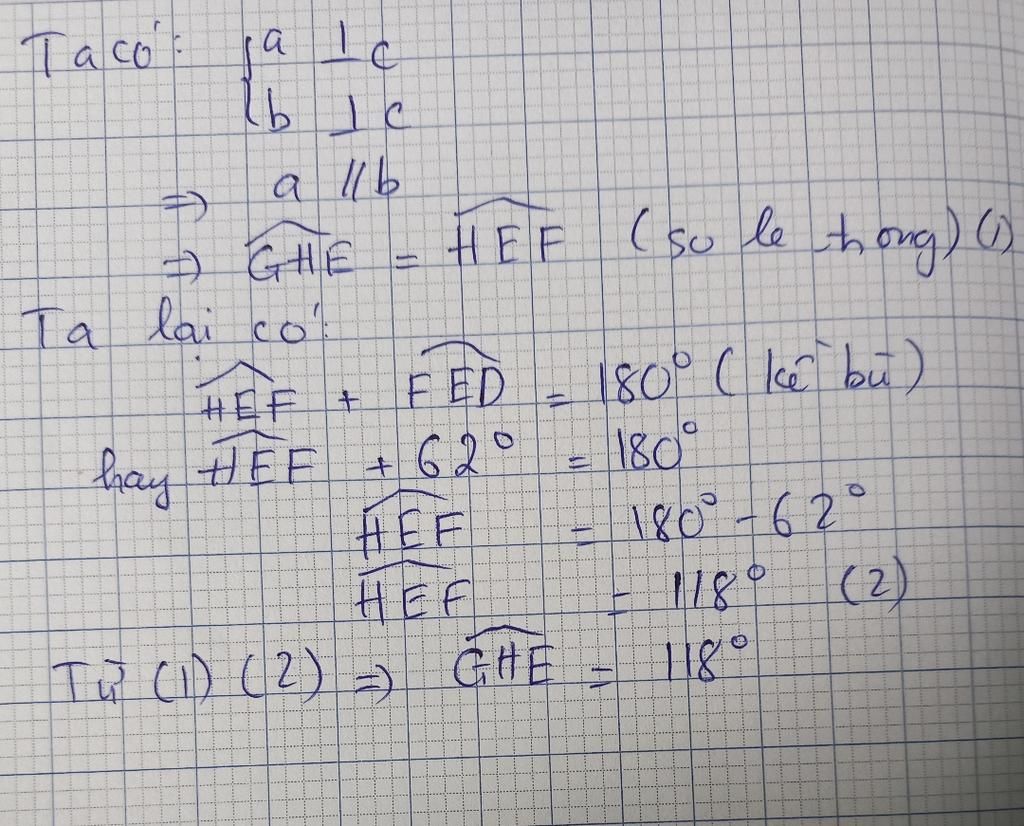 Ta có: { a ⊥ c
b ⊥ c
=> a // b
=> GHE = HEF (so le trong) (1)
Ta lại có:
HEF + FED = 180° (kề bù)
hay HEF + 62° = 180°
HEF = 180° - 62°
HEF = 118° (2)
Từ (1) (2) => GHE = 118°